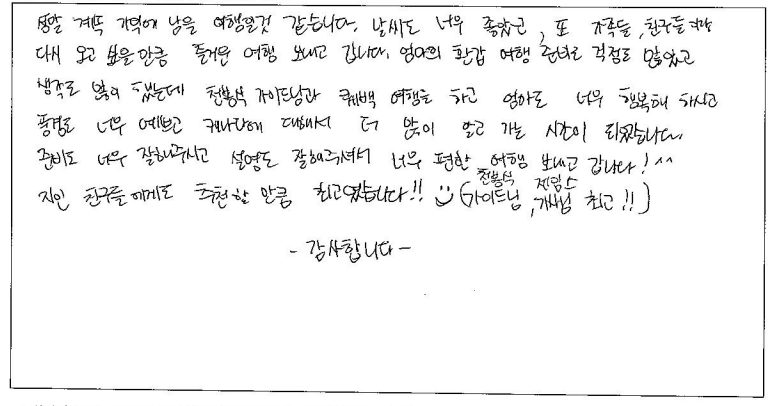 정말 계속 기억에 남을 여행일것 같습니다. 날씨도 너무 좋았고, 또 가족들, 친구들이랑
다시 오고 싶을만큼 즐거운 여행 보내고 갑니다. 엄마의 환갑 여행 준비로 걱정도 많았고
생각도 많이 했는데 천봉식 가이드님과 퀘백 여행을 하고 엄마도 너무 행복해 하시고
풍경도 너무 예쁘고 캐나다에 대해서 더 많이 알고 가는 시간이 되었습니다.
준비도 너무 잘해주시고 설명도 잘해주셔서 너무 편한 여행 보내고 갑니다! ^^
지인 친구들에게도 추천할 만큼 최고였습니다!! (천봉식 가이드님, 제임스 기사님 최고!!)
- 감사합니다 -